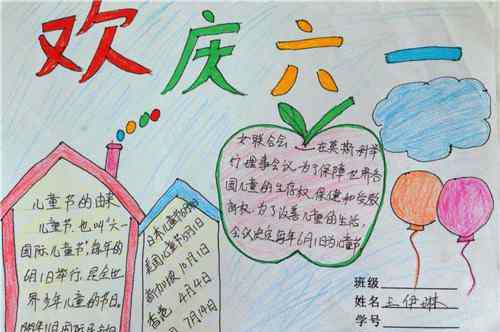 欢庆六一
儿童节的由来
儿童节,也叫“六一
国际儿童节”,每年的
6月1日举行,是全世
界少年儿童的节日。
日本儿童节5月5日
美国儿童节5月1日
新加坡 10月1日
香港 4月4日
7月14日
妇联合会 在莫斯科举
行理事会议,为了保障世界各
国儿童的生存权、保健和受教
育权,为了改善儿童的生活,
会议决定每年6月1日为儿童节
班级
姓名 王伊琳
学号